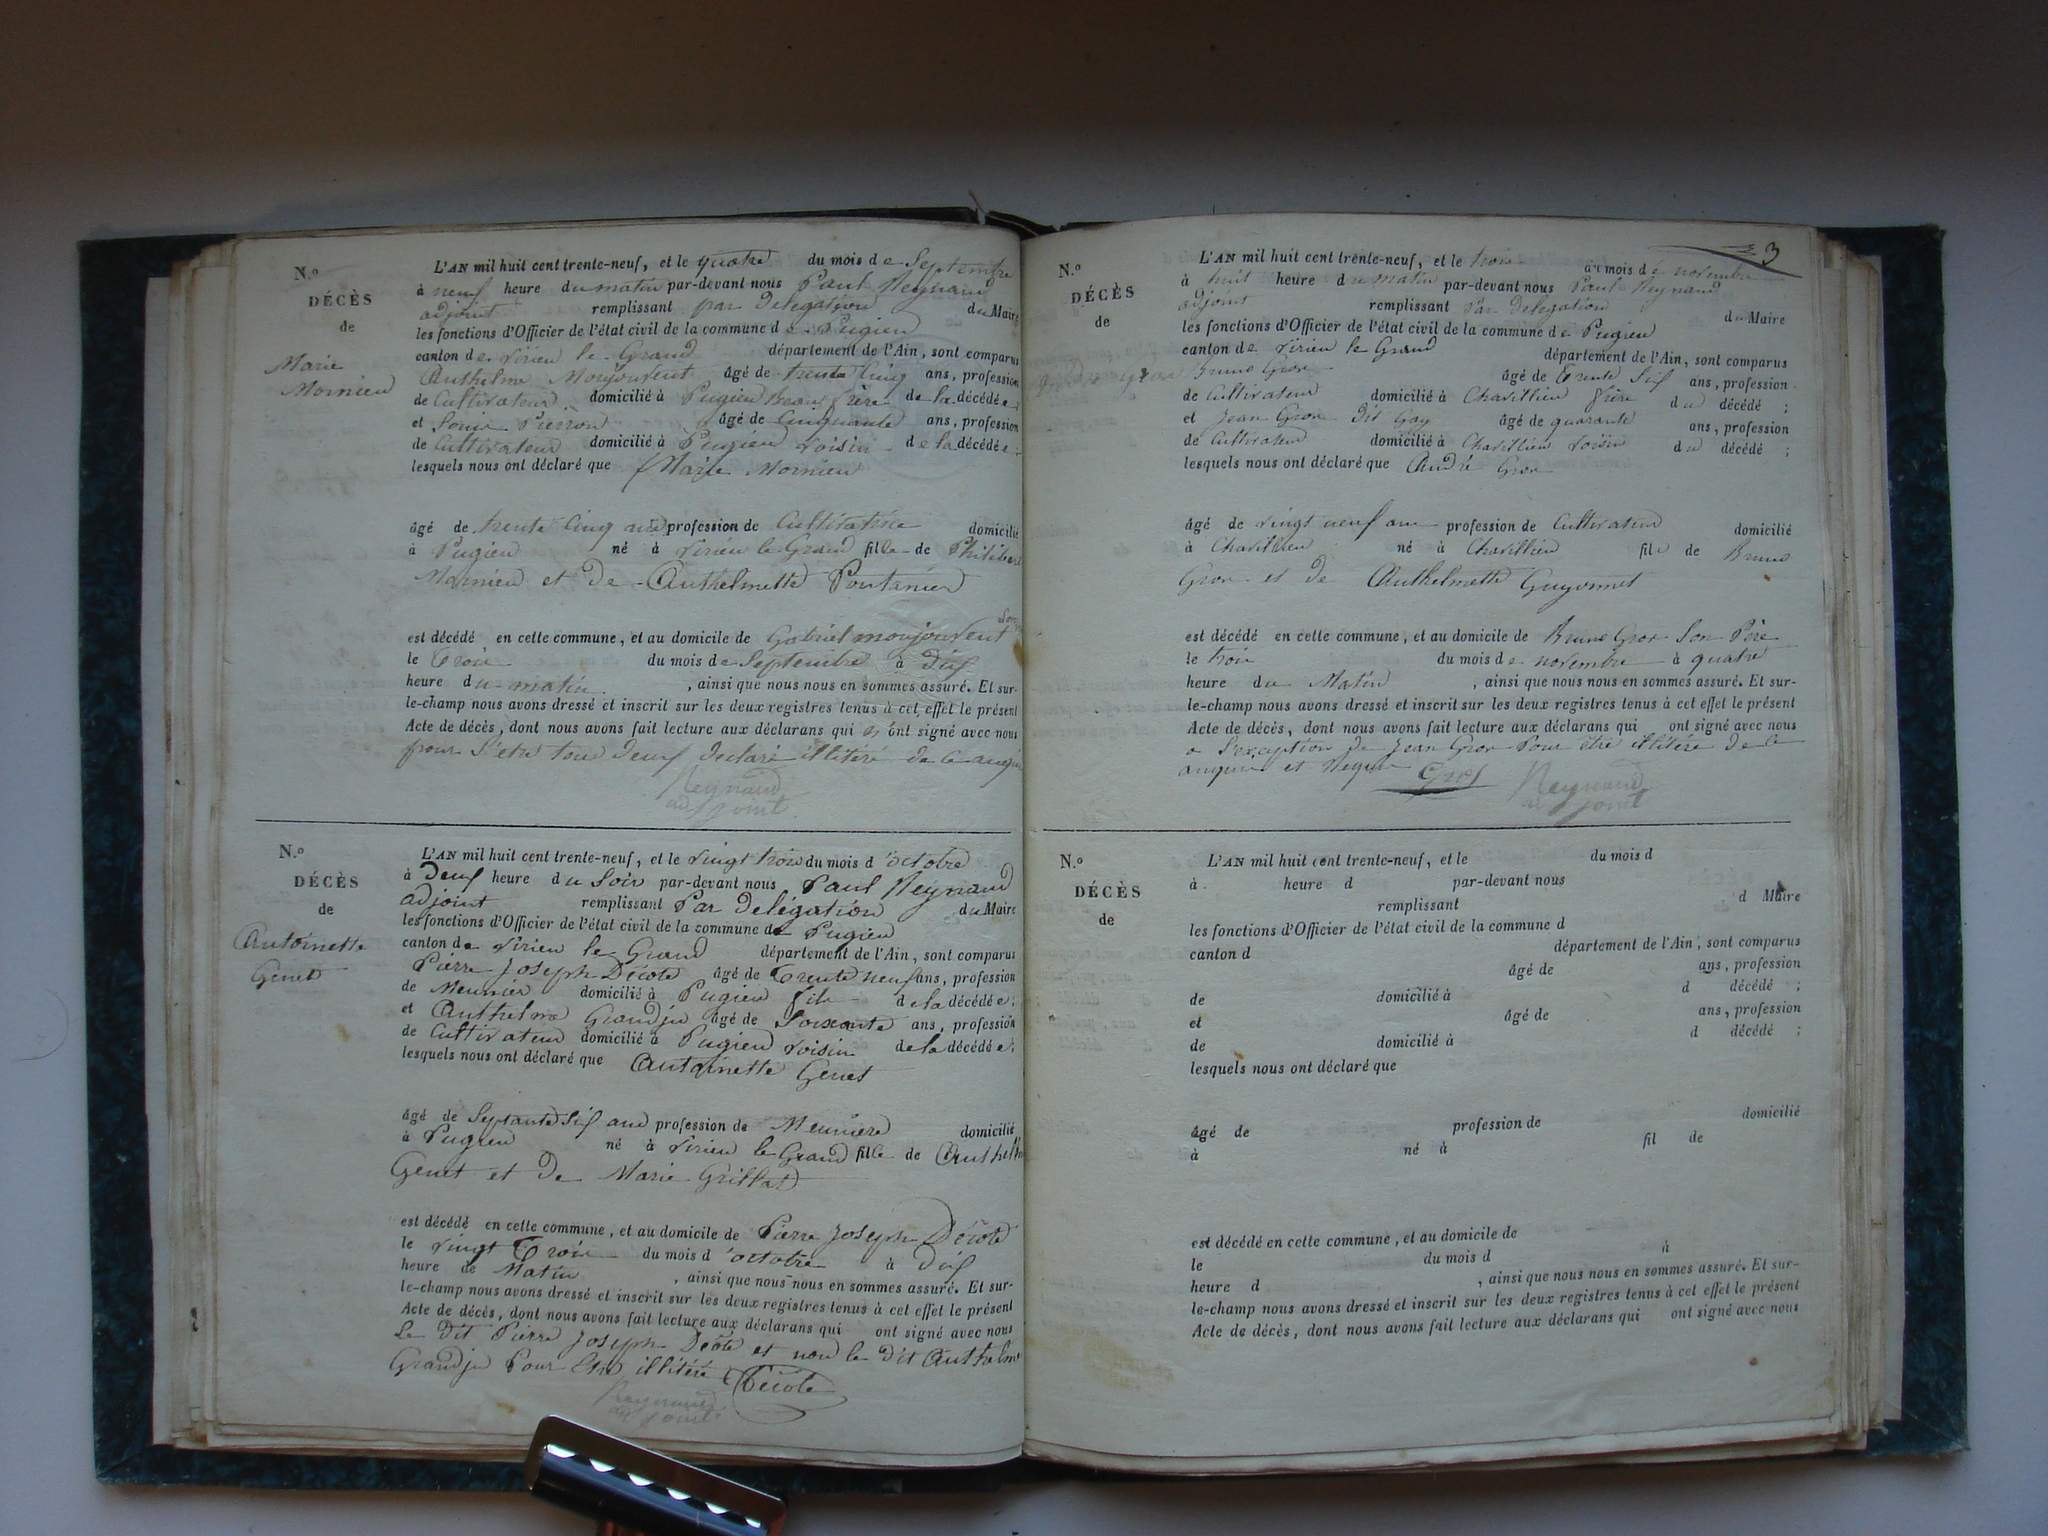 N.º
DÉCÈS
de
Marie
Mornieu
L'AN mil huit cent trente-neuf, et le quatre du mois de Septembre
à neuf heure du matin par-devant nous Paul Reynaud
adjoint remplissant par Delegation du Maire
les fonctions d'Officier de l'état civil de la commune de Pugieu
canton de Virieu le Grand département de l'Ain, sont comparus
Anthelme Monjouvent âgé de trente Cinq ans, profession
de Cultivateur domicilié à Pugieu Beau frère de la décédée;
et Pierron âgé de Cinquante ans, profession
de Cultivateur domicilié à Pugieu Voisin de la décédée;
lesquels nous ont déclaré que Marie Mornieu
âgé de trente Cinq ans profession de Cultivatrice domicilié
à Pugieu né à Virieu le Grand fille de Philibert
Mornieu et De Anthelmette Pontanier
est décédé en cette commune, et au domicile de Gabriel monjouvent
le trois du mois de Septembre à Dix
heure du matin, ainsi que nous nous en sommes assuré. Et sur-
le-champ nous avons dressé et inscrit sur les deux registres tenus à cet effet le présent
Acte de décès, dont nous avons fait lecture aux déclarans qui n'ont signé avec nous
pour S'etre tous Deux Declaré illitéré de ce
Reynaud
adjoint
N.º
DÉCÈS
de
Antoinette
Genet
L'AN mil huit cent trente-neuf, et le vingt trois du mois d'octobre
à Deux heure du Soir par-devant nous Paul Reynaud
adjoint remplissant Par Delégation du Maire
les fonctions d'Officier de l'état civil de la commune de Pugieu
canton de Virieu le Grand département de l'Ain, sont comparus
Pierre Joseph Décote âgé de Trente neuf ans, profession
de Meunier domicilié à Pugieu fils de la décédée;
et Anthelme Grandju âgé de Soixante ans, profession
de Cultivateur domicilié à Pugieu Voisin de la décédée;
lesquels nous ont déclaré que Antoinette Genet
âgé de Septante Six ans profession de Meuniere domicilié
à Pugieu né à Virieu le Grand fille de Anthelme
Genet et De Marie Grillat
est décédé en cette commune, et au domicile de Pierre Joseph Décote
le vingt Trois du mois d'octobre à Dix
heure de Matin, ainsi que nous nous en sommes assuré. Et sur-
le-champ nous avons dressé et inscrit sur les deux registres tenus à cet effet le présent
Acte de décès, dont nous avons fait lecture aux déclarans qui ont signé avec nous
Le Dit Pierre Joseph Décote et non le Dit Anthelme
Grandju Pour Etre illitéré Décote
Reynaud
adjoint
3
N.º
DÉCÈS
de
L'AN mil huit cent trente-neuf, et le trois du mois de novembre
à huit heure du matin par-devant nous Paul Reynaud
adjoint remplissant Par Delegation du Maire
les fonctions d'Officier de l'état civil de la commune de Pugieu
canton de Virieu le Grand département de l'Ain, sont comparus
Bruno Gros âgé de Trente Six ans, profession
de Cultivateur domicilié à Chavillieu frère du décédé;
et Jean Gros Dit Gay âgé de quarante ans, profession
de Cultivateur domicilié à Chavillieu Voisin du décédé;
lesquels nous ont déclaré que André Gros
âgé de vingt neuf ans profession de Cultivateur domicilié
à Chavillieu né à Chavillieu fils de Bruno
Gros et De Anthelmette Guyonnet
est décédé en cette commune, et au domicile de Bruno Gros Son Père
le trois du mois de novembre à quatre
heure du Matin, ainsi que nous nous en sommes assuré. Et sur-
le-champ nous avons dressé et inscrit sur les deux registres tenus à cet effet le présent
Acte de décès, dont nous avons fait lecture aux déclarans qui ont signé avec nous
a l'exception De Jean Gros Pour être illitéré De ce
et Gros Reynaud
adjoint
N.º
DÉCÈS
de
L'AN mil huit cent trente-neuf, et le du mois d
à heure d par-devant nous
remplissant d Maire
les fonctions d'Officier de l'état civil de la commune d
canton d département de l'Ain, sont comparus
âgé de ans, profession
de domicilié à d décédé;
et âgé de ans, profession
de domicilié à d décédé;
lesquels nous ont déclaré que
âgé de profession de domicilié
à né à fil de
est décédé en cette commune, et au domicile de
le du mois d à
heure d, ainsi que nous nous en sommes assuré. Et sur-
le-champ nous avons dressé et inscrit sur les deux registres tenus à cet effet le présent
Acte de décès, dont nous avons fait lecture aux déclarans qui ont signé avec nous